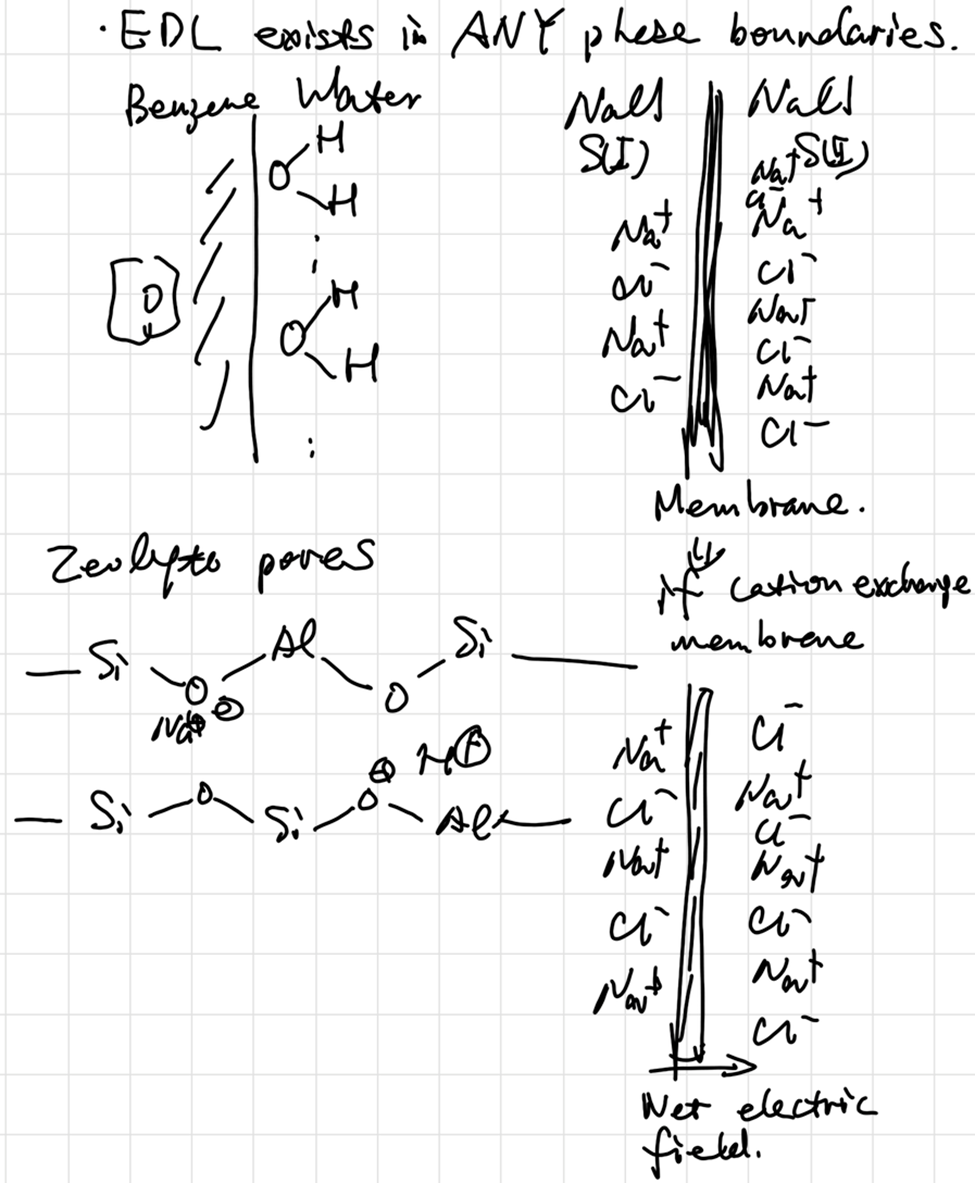 · EDL exists in ANY phase boundaries.
Benzene Water
O H
H
O H
H
NaCl
S(I)
Na⁺
Cl⁻
Na⁺
Cl⁻
NaCl
S(II)
Na⁺
Cl⁻
Na⁺
Cl⁻
Na⁺
Cl⁻
Na⁺
Cl⁻
Membrane.
⇓
if cation exchange
membrane
Zeolyto pores
— Si O Al O Si —
Na⁺ ⊖
⊕ H⊕
— Si O Si O Al —
Na⁺
Cl⁻
Na⁺
Cl⁻
Na⁺
Cl⁻
Na⁺
Cl⁻
Na⁺
Cl⁻
Na⁺
Cl⁻
Net electric
field.